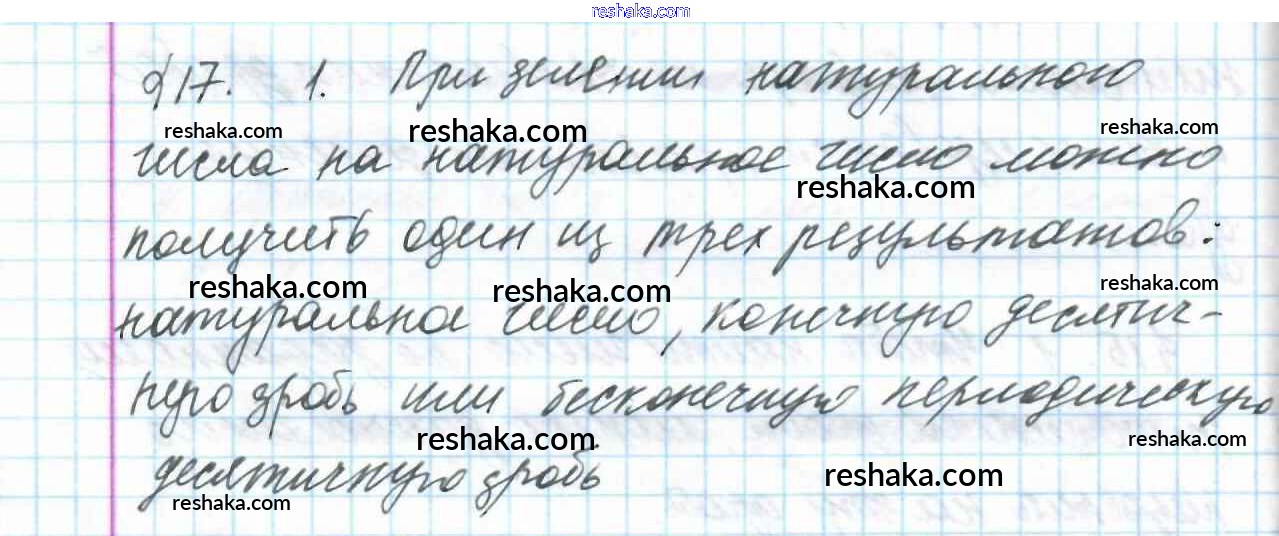 reshaka.com
§17. 1. При делении натурального
reshaka.com reshaka.com reshaka.com
числа на натуральное число можно
reshaka.com
получить один из трех результатов:
reshaka.com reshaka.com reshaka.com
натуральное число, конечную десятич-
ную дробь или бесконечную периодическую
reshaka.com reshaka.com
десятичную дробь
reshaka.com reshaka.com